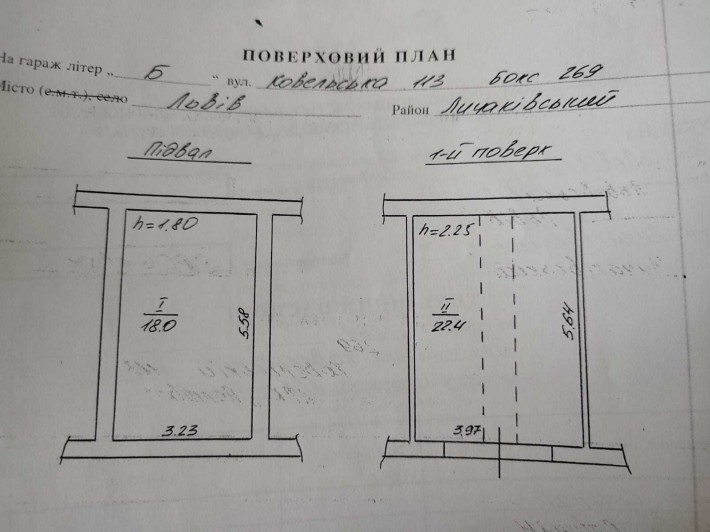 ПОВЕРХОВИЙ ПЛАН
На гараж літер „ Б " вул. Ковельська 113 бокс 269
Місто (с.м.т.), село Львів Район Личаківський
Підвал
1-й поверх
h=1.80
h=2.25
I
18.0
5.58
II
22.4
5.64
3.23
3.97
269